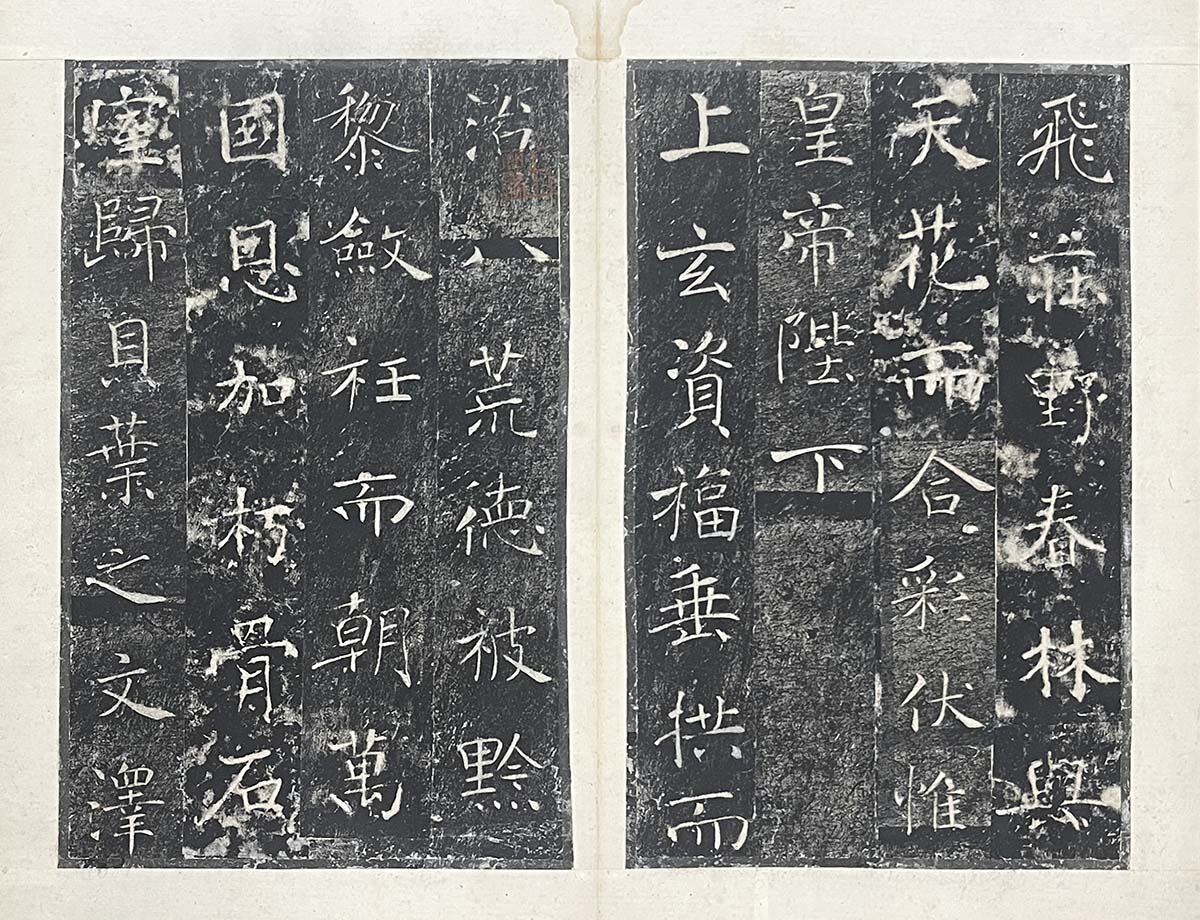 飛莊野春林與
天花而合彩伏惟
皇帝陛下
上玄資福垂拱而
治八荒德被黔
黎斂衽而朝萬
國恩加朽骨石
室歸貝葉之文澤